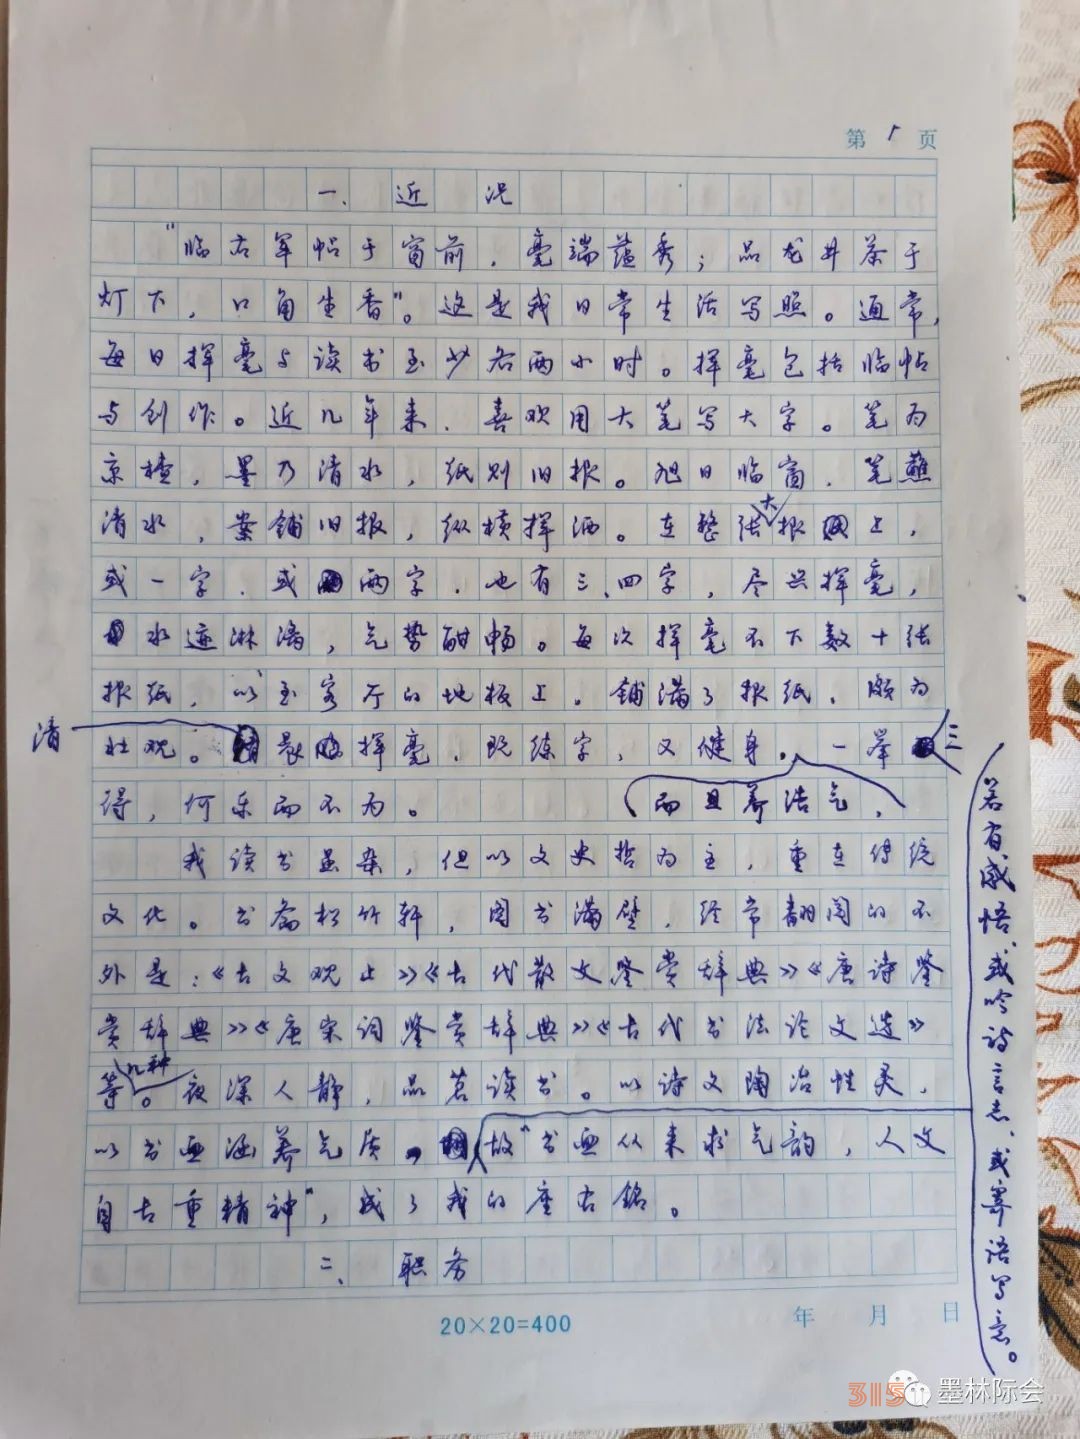 第 1 页
一、近况
“临右军帖于窗前，毫端蕴秀；品龙井茶于
灯下，口角生香”。这是我日常生活写照。通常，
每日挥毫与读书至少各两小时。挥毫包括临帖
与创作。近几年来，喜欢用大笔写大字。笔为
京楂，墨乃清水，纸则旧报。旭日临窗，笔蘸
清水，案铺旧报，纵横挥洒。在整张大报上，
或一字、或两字，也有三、四字，尽兴挥毫，
水迹淋漓，气势酣畅。每次挥毫不下数十张
报纸，以至客厅的地板上，铺满了报纸，颇为
壮观。清晨挥毫，既练字，又健身，一举三
得，何乐而不为。
而且养浩气，
我读书虽杂，但以文史哲为主，重在传统
文化。书斋松竹轩，图书满壁，经常翻阅的不
外是：《古文观止》《古代散文鉴赏辞典》《唐诗鉴
赏辞典》《唐宋词鉴赏辞典》《古代书法论文选》
等几种。夜深人静，品茗读书。以诗文陶冶性灵，
以书画涵养气质。故“书画从来求气韵，人文
自古重精神”，成了我的座右铭。
若有感悟、或吟诗言志、或寄语写意。
二、职务
20×20=400
年 月 日
315
墨林际会